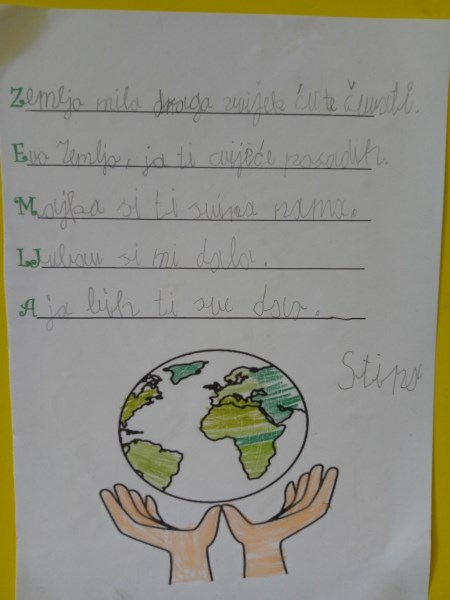 Zemljo mila draga uvijek ću te čuvati.
Evo Zemljo, ja ti cvijeće posadih.
Majka si ti svima nama.
LJubav si mi dala.
A ja bih ti sve dao.
Stipo